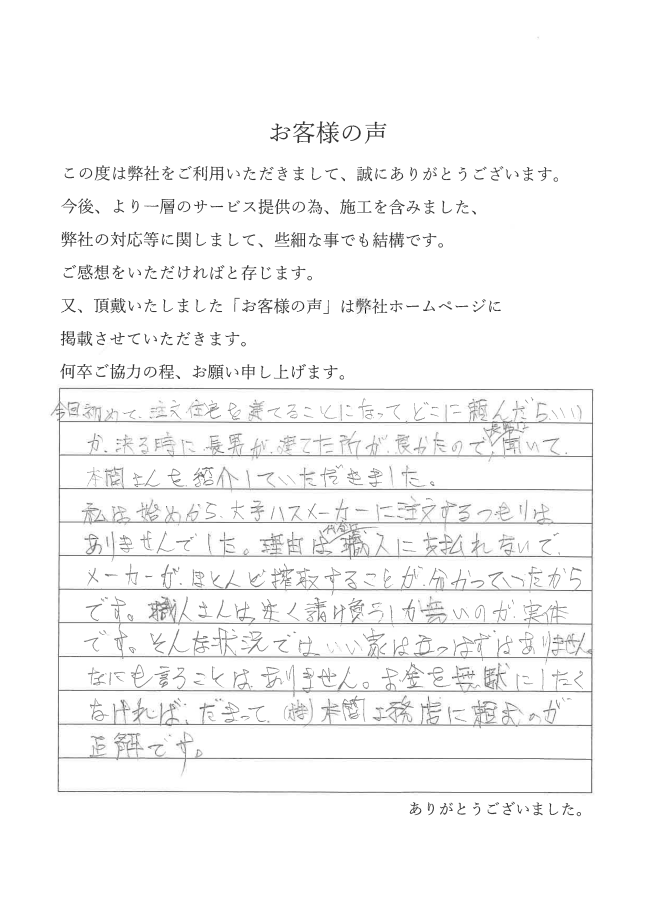 お客様の声
この度は弊社をご利用いただきまして、誠にありがとうございます。
今後、より一層のサービス提供の為、施工を含みました、
弊社の対応等に関しまして、些細な事でも結構です。
ご感想をいただければと存じます。
又、頂戴いたしました「お客様の声」は弊社ホームページに
掲載させていただきます。
何卒ご協力の程、お願い申し上げます。
今回初めて、注文住宅を建てることになって、どこに頼んだらいい
か、決る時に、長男が、建てた所が、良かたので、聞いて、
本間さんを紹介していただきました。
私は始めから、大手ハスメーカーに注文するつもりは
ありませんでした。理由は職人に支払れないで、
メーカーが、ほとんど搾取することが、分かっていたから
です。職人さんは、安く請け負うしか無いのが、実体
です。そんな状況では、いい家は立つはずはありません。
なにも言うことは、ありません。お金を無駄にしたく
なければ、だまって、(株)本間工務店に頼むのが
正解です。
ありがとうございました。